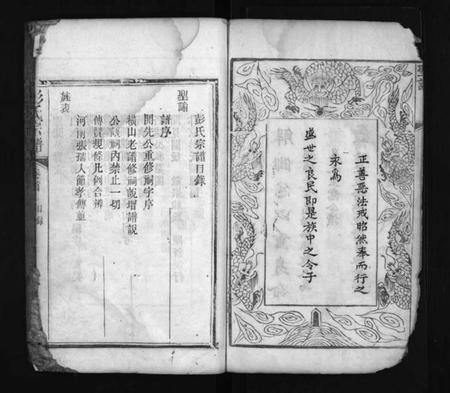 正善惡法戒昭然奉而行之
永為
盛世之良民即是族中之令子
彭氏宗譜目錄
聖諭
譜序
開先公重修祠字序
橫山老譜修祠說增譜說
公議祠內禁止一切
傳贊規條比例合辨
河南張孺人節孝傳
彭氏宗譜